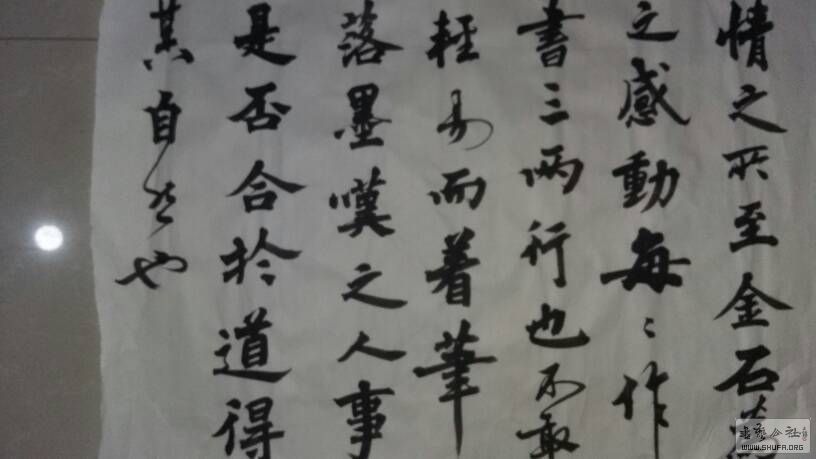 情之所至金石為
之感動每々作
書三兩行也不敢
輕易而着筆
落墨嘆之人事
是否合於道得
其自然也
WWW.SHUFA.ORG